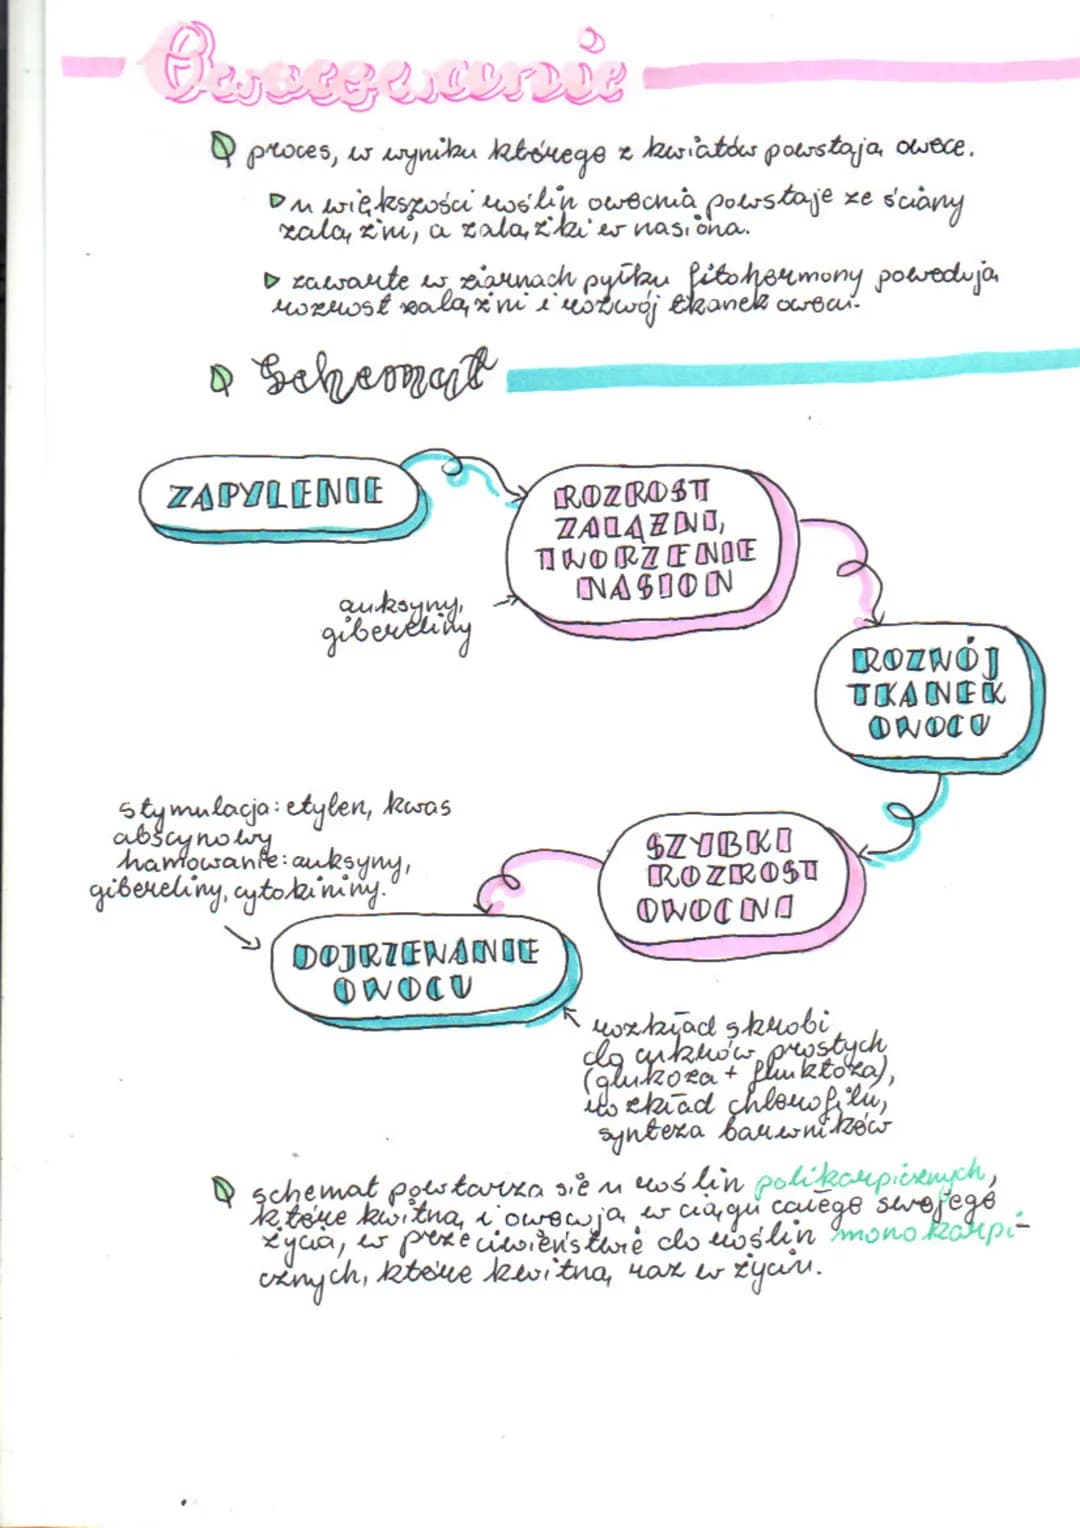 Owocowanie
proces, w wyniku którego z kwiatów powstają owoce.
u większości roślin owocnia powstaje ze ściany
zalążni, a zalążki w nasiona.
zawarte w ziarnach pyłku fitohormony powodują
rozrost zalążni i rozwój tkanek owocu.
Schemat
ZAPYLENIE
ROZROST
ZALĄŻNI,
TWORZENIE
NASION
auksyny,
gibereliny
ROZWÓJ
TKANEK
OWOCU
SZYBKI
ROZROST
OWOCNI
stymulacja: etylen, kwas
abscynowy
hamowanie: auksyny,
gibereliny, cytokininy.
DOJRZEWANIE
OWOCU
rozkład skrobi
do cukrów prostych
(glukoza + fruktoza),
rozkład chlorofilu,
synteza barwników
schemat powtarza się u roślin polikarpicznych,
które kwitną i owocują w ciągu całego swojego
życia, w przeciwieństwie do roślin monokarpi-
cznych, które kwitną raz w życiu.